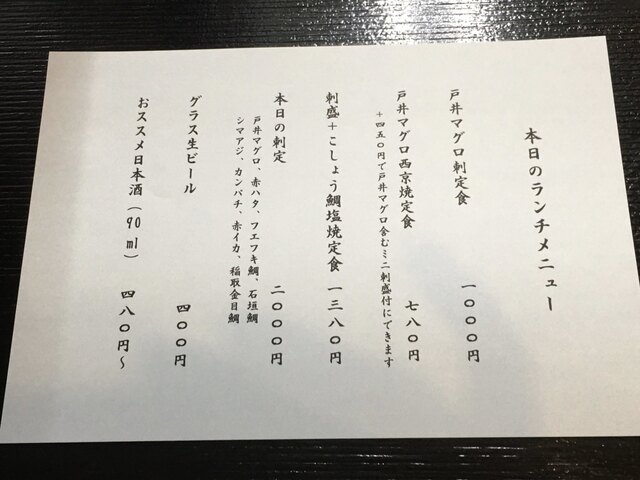 本日のランチメニュー
戸井マグロ刺定食 一〇〇〇円
戸井マグロ西京焼定食 七八〇円
+四五〇円で戸井マグロ含むミニ刺盛付にできます
刺盛+こしょう鯛塩焼定食 一三八〇円
本日の刺定 二〇〇〇円
戸井マグロ、赤ハタ、フエフキ鯛、石垣鯛
シマアジ、カンパチ、赤イカ、稲取金目鯛
グラス生ビール 四〇〇円
おススメ日本酒(90ml) 四八〇円~